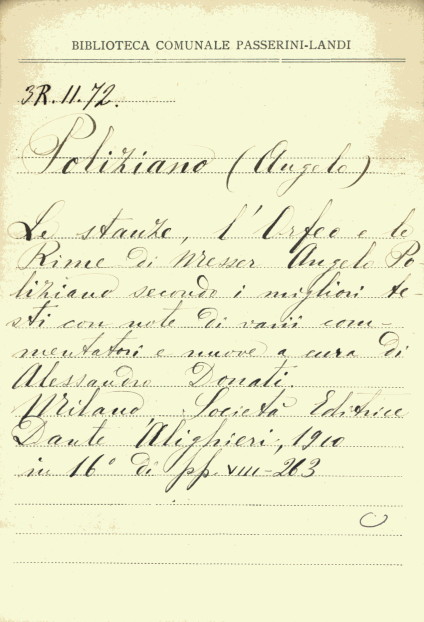 BIBLIOTECA COMUNALE PASSERINI-LANDI
3R.II.72.
Poliziano (Angelo)
Le stanze, l'Orfeo e le
Rime di Messer Angelo Po-
liziano secondo i migliori te-
sti con note di varii com-
mentatori e nuove a cura di
Alessandro Donati.
Milano, Società Editrice
Dante Alighieri, 1910
in 16° di pp. VIII-263